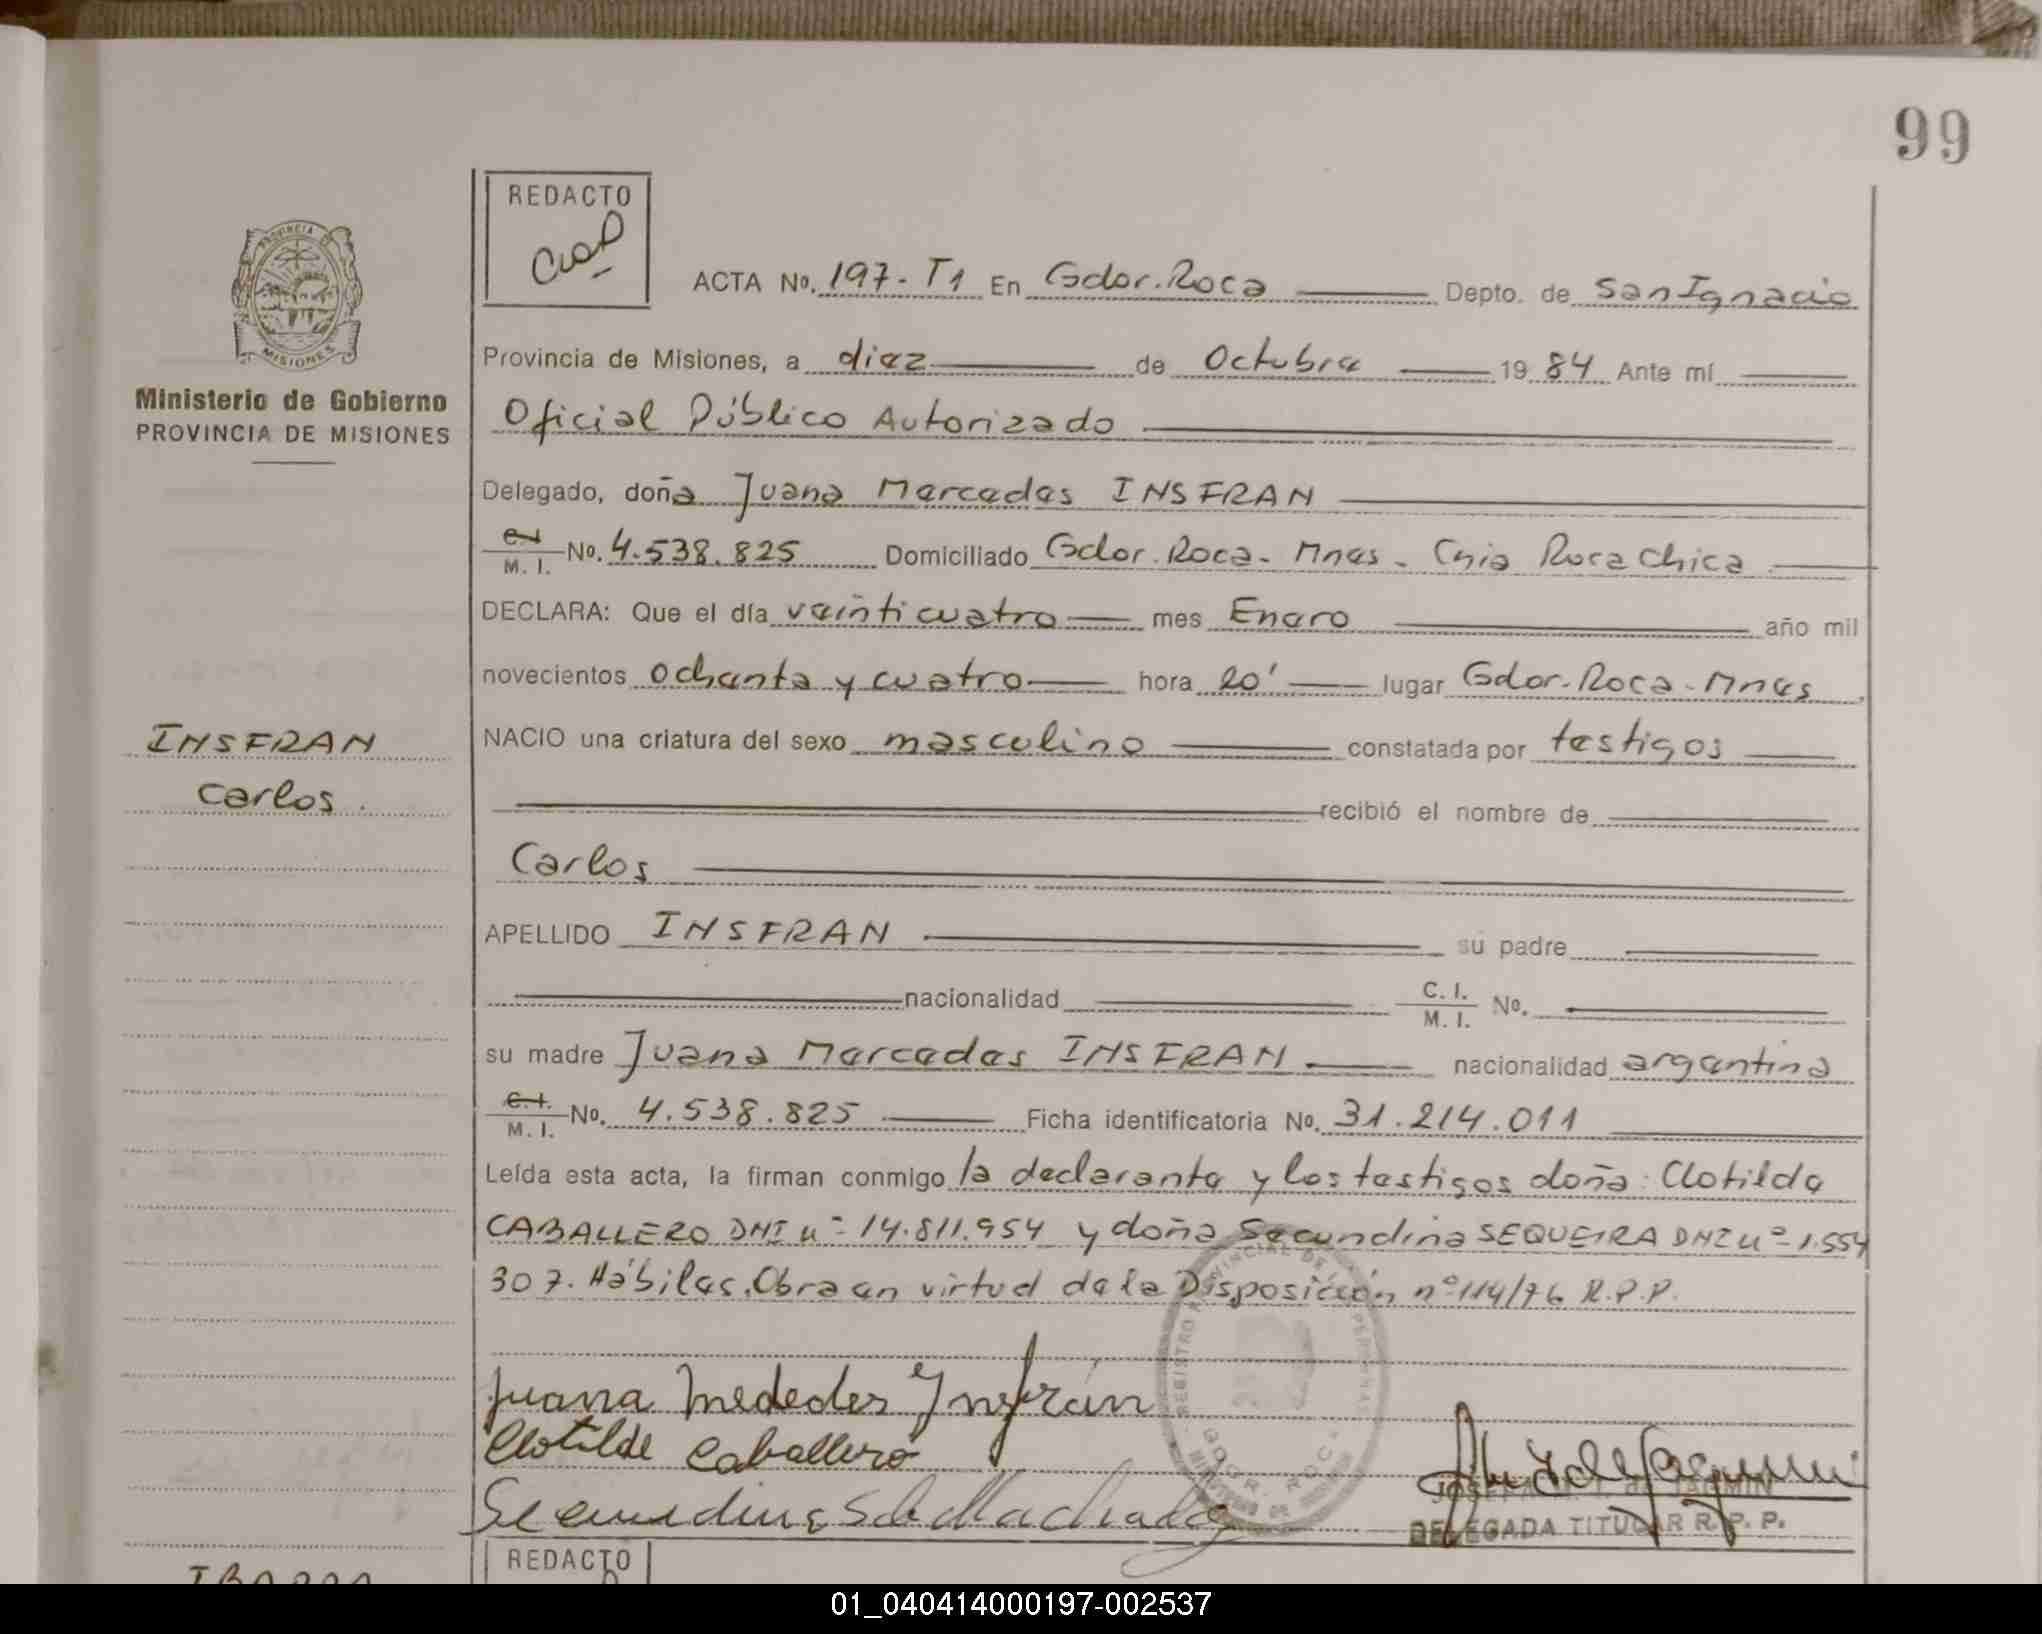 99
REDACTO
PROVINCIA DE
MISIONES
ACTA No. 197 - T1 En Gdor. Roca Depto. de San Ignacio
Provincia de Misiones, a diez de Octubre 19 84 Ante mí
Ministerio de Gobierno
PROVINCIA DE MISIONES
Oficial Público Autorizado
Delegado, doña Juana Mercedes INSFRAN
C.I. M. I. No. 4.538.825 Domiciliado Gdor. Roca - Mnes - Cnia Roca Chica
DECLARA: Que el día veinticuatro mes Enero año mil
novecientos ochenta y cuatro hora 20' lugar Gdor. Roca - Mnes
INSFRAN
Carlos.
NACIO una criatura del sexo masculino constatada por testigos
recibió el nombre de
Carlos
APELLIDO INSFRAN su padre
nacionalidad C. I. M. I. No.
su madre Juana Mercedes INSFRAN nacionalidad argentina
C.I. M. I. No. 4.538.825 Ficha identificatoria No. 31.214.011
Leída esta acta, la firman conmigo la declarante y los testigos doña: Clotilde
CABALLERO DNI nº 14.811.954 y doña Secundina SEQUEIRA DNI nº 1.554
307. Hábiles. Obra en virtud de la Disposición nº 114/76 R.P.P.
Juana Mededes Insfrán
Clotilde Caballero
Secundina S de Machado
DELEGADA TITULAR R. P. P.
REDACTO
01_040414000197-002537